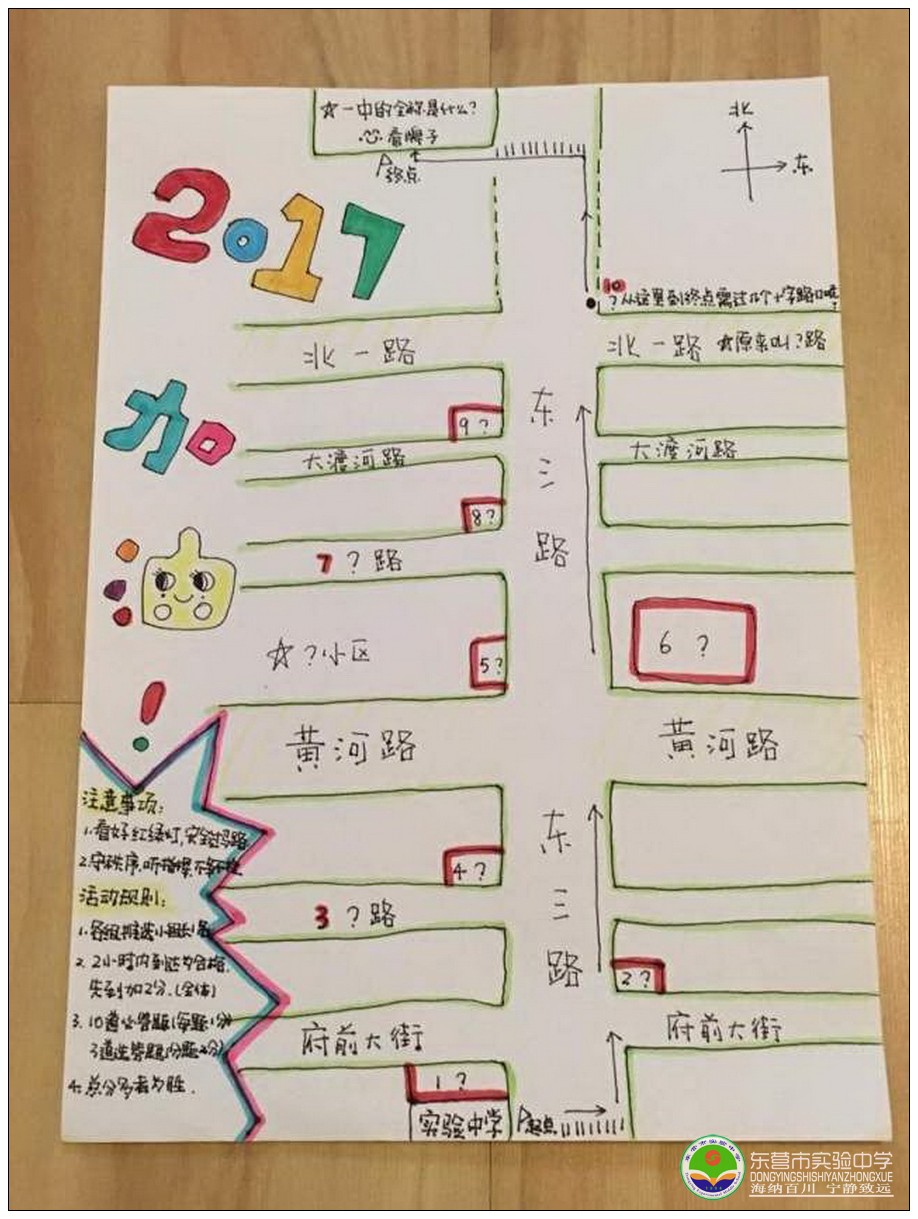 ☆一中的全称是什么?
看牌子
终点
北
东
2017
10
?从这里到终点需过几个十字路口呢?
北一路
北一路 ☆原来叫?路
东三路
9?
大渡河路
大渡河路
加
8?
7?路
☆?小区
5?
6?
油
!
黄河路
黄河路
注意事项:
1.看好红绿灯,安全过马路
2.守秩序,听指挥,不拥挤
东三路
4?
活动规则:
3?路
1.各组推选小组长1名
2.2小时内到达为合格,
先到加2分.(全体)
2?
3.10道必答题(每题1分)
3道选答题(分题2分)
4.总分多者为胜.
府前大街
府前大街
1?
实验中学
起点
东营市实验中学
DONGYINGSHISHIYANZHONGXUE
海纳百川 宁静致远